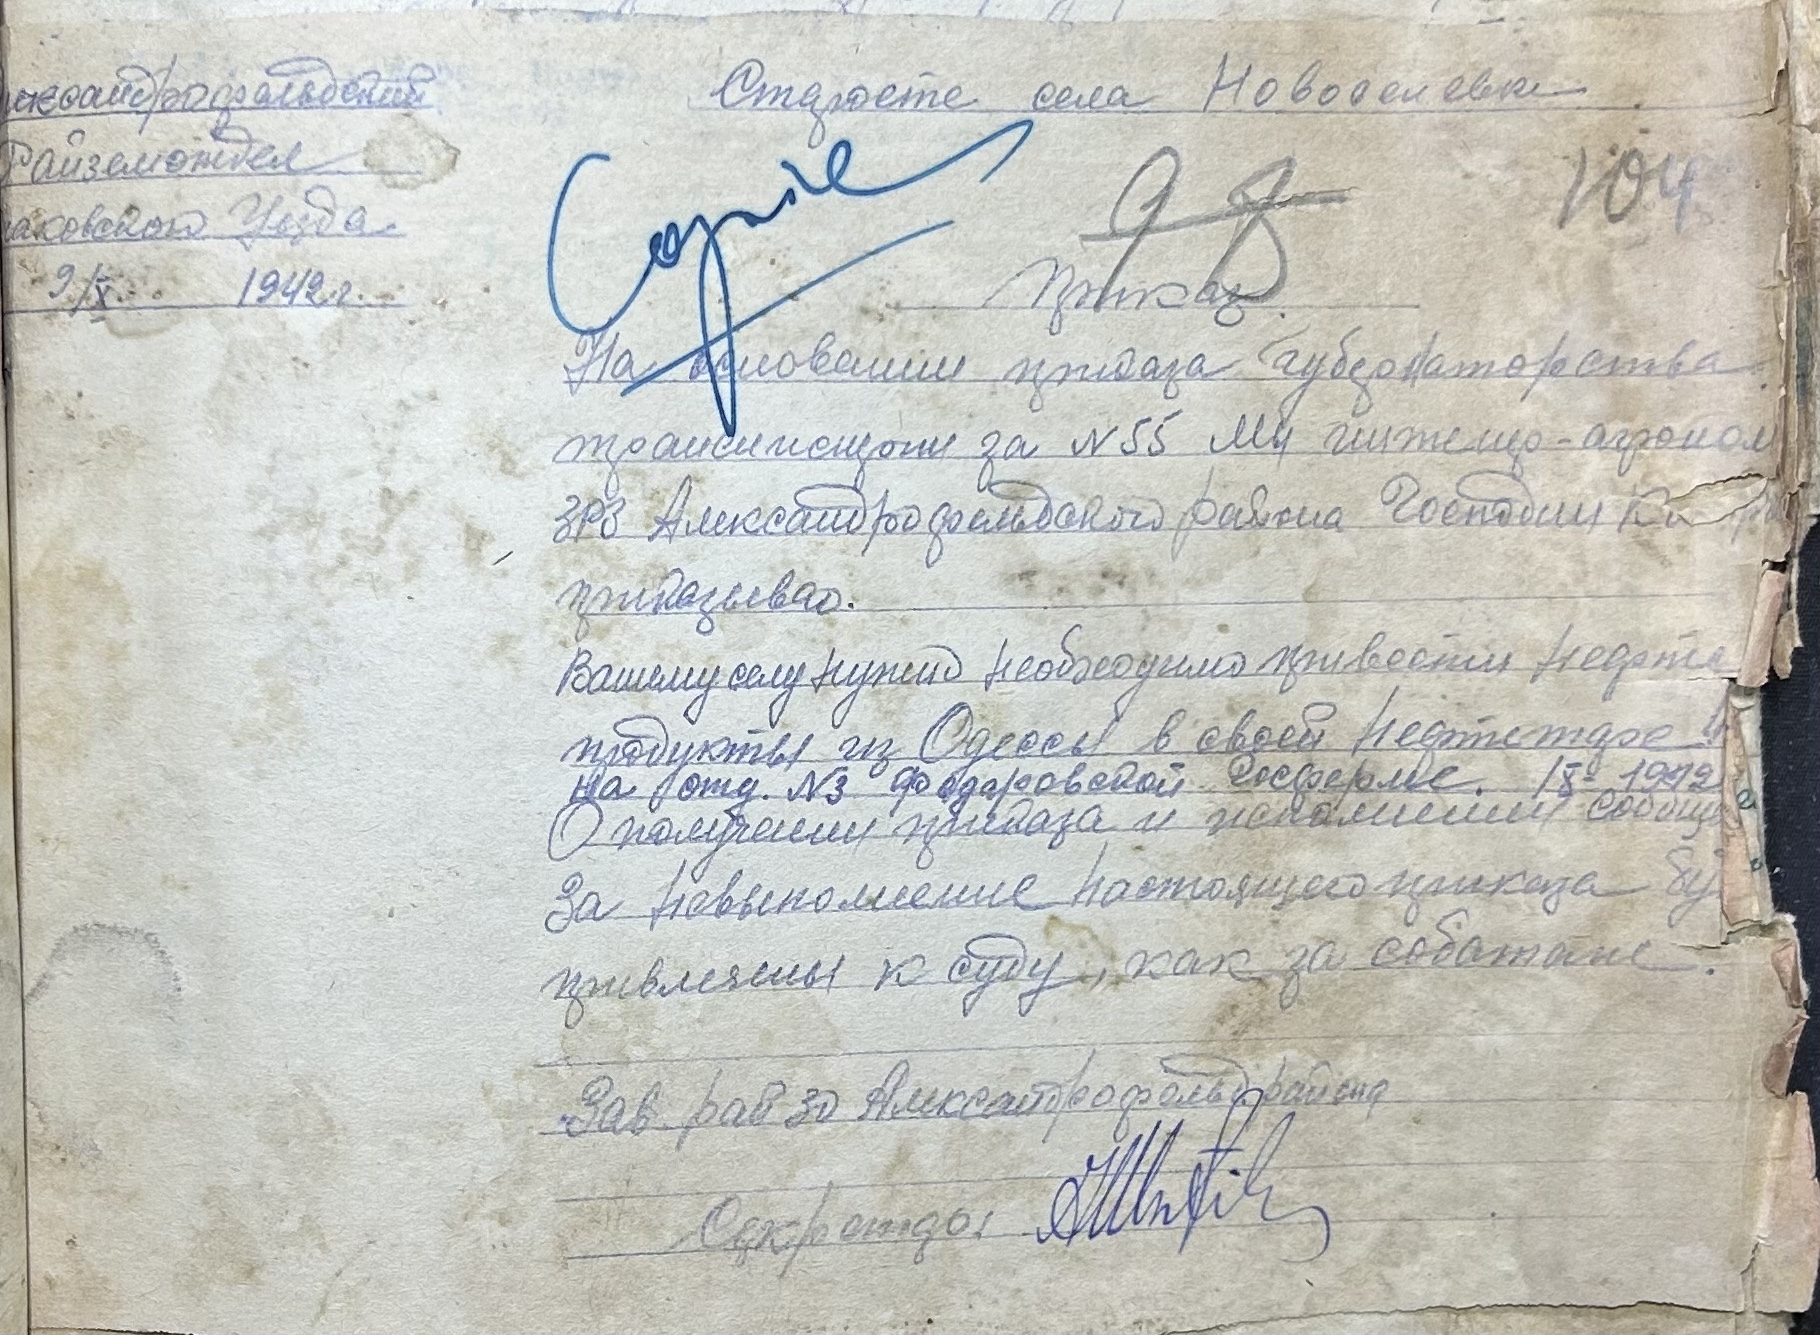 ександрофельдский
Райземотдел
аковского Уезда
9/X 1942 г.
Старосте села Новоселевки
Copie
98
104
Приказ
На основании приказа Губернаторства
транснистрии за N 55 Мы инженер-агроном
ЗРЗ Александрофельдского района Господин
приказываю.
Вашему селу нужно необходимо привести Нефте
продукты из Одессы в своей Нефтетаре
на отд. N3 Федоровской Госферме. 1942
О получении приказа и исполнении сообщ
За невыполнение настоящего приказа бу
привлечены к суду, как за соботаж.
Зав рай зо Александрофельд района